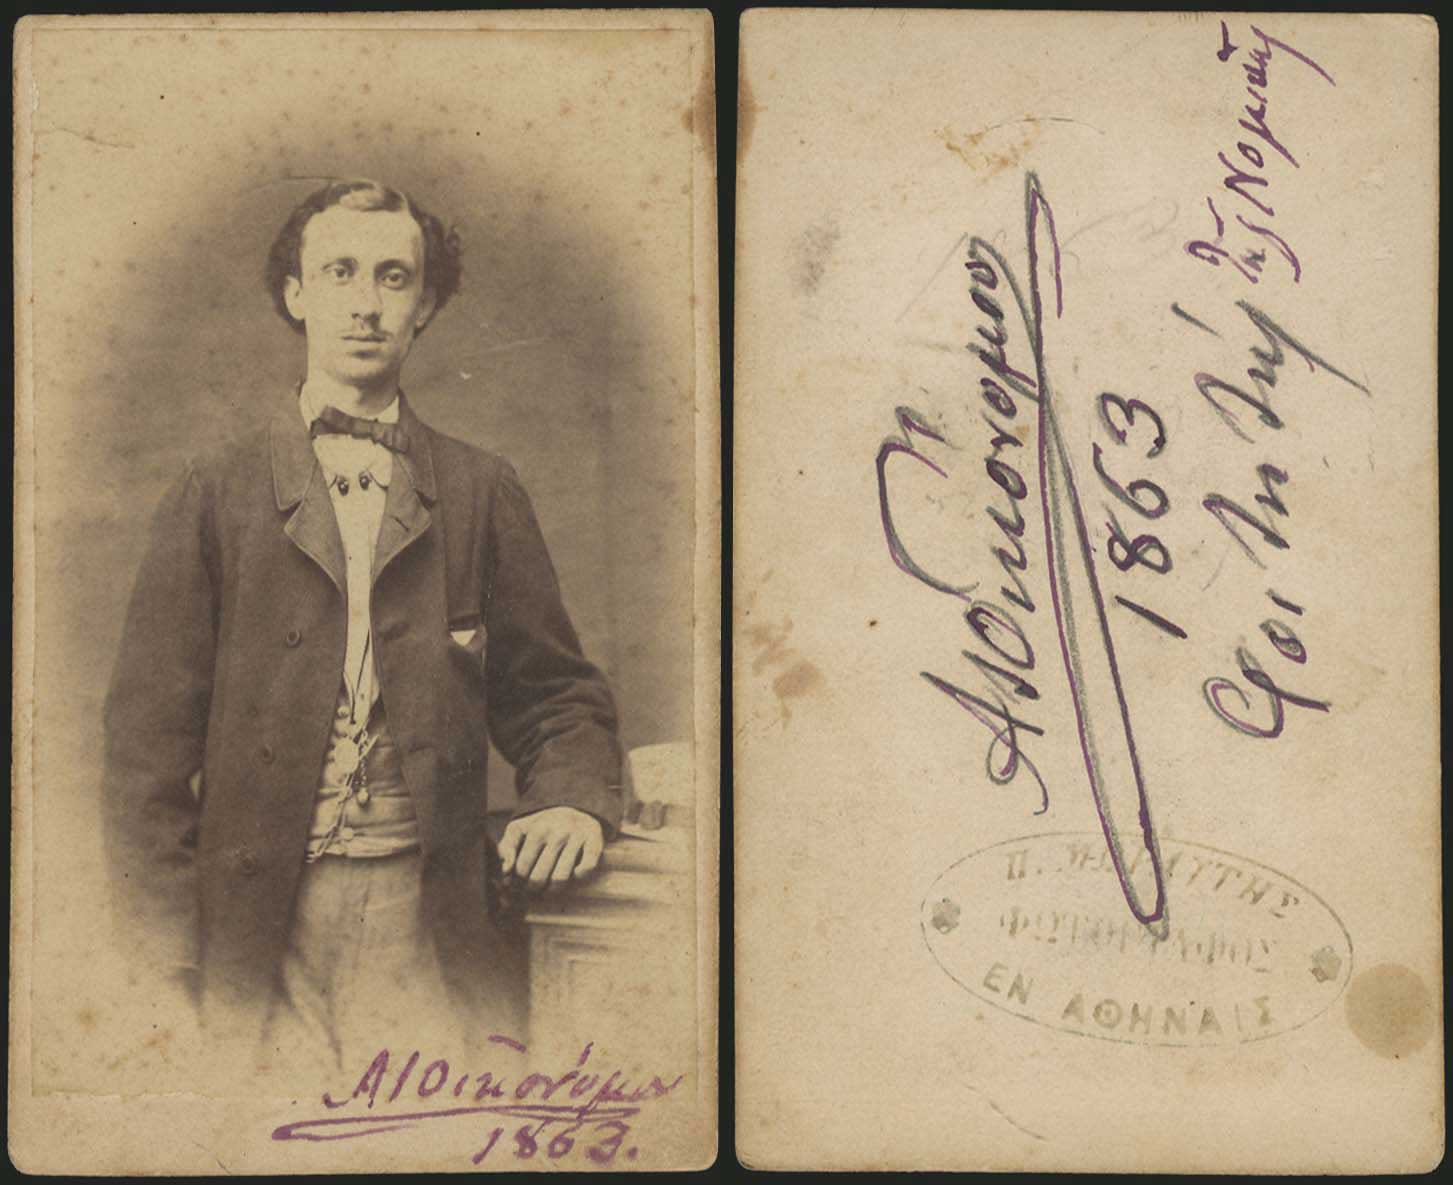 Α Ι Οικονόμου
1863.
Α Ι Οικονομου
1863
Φοιτητής
της Νομικής
Π. ΜΩΡΑΪΤΗΣ
ΦΩΤΟΓΡΑΦΟΣ
ΕΝ ΑΘΗΝΑΙΣ